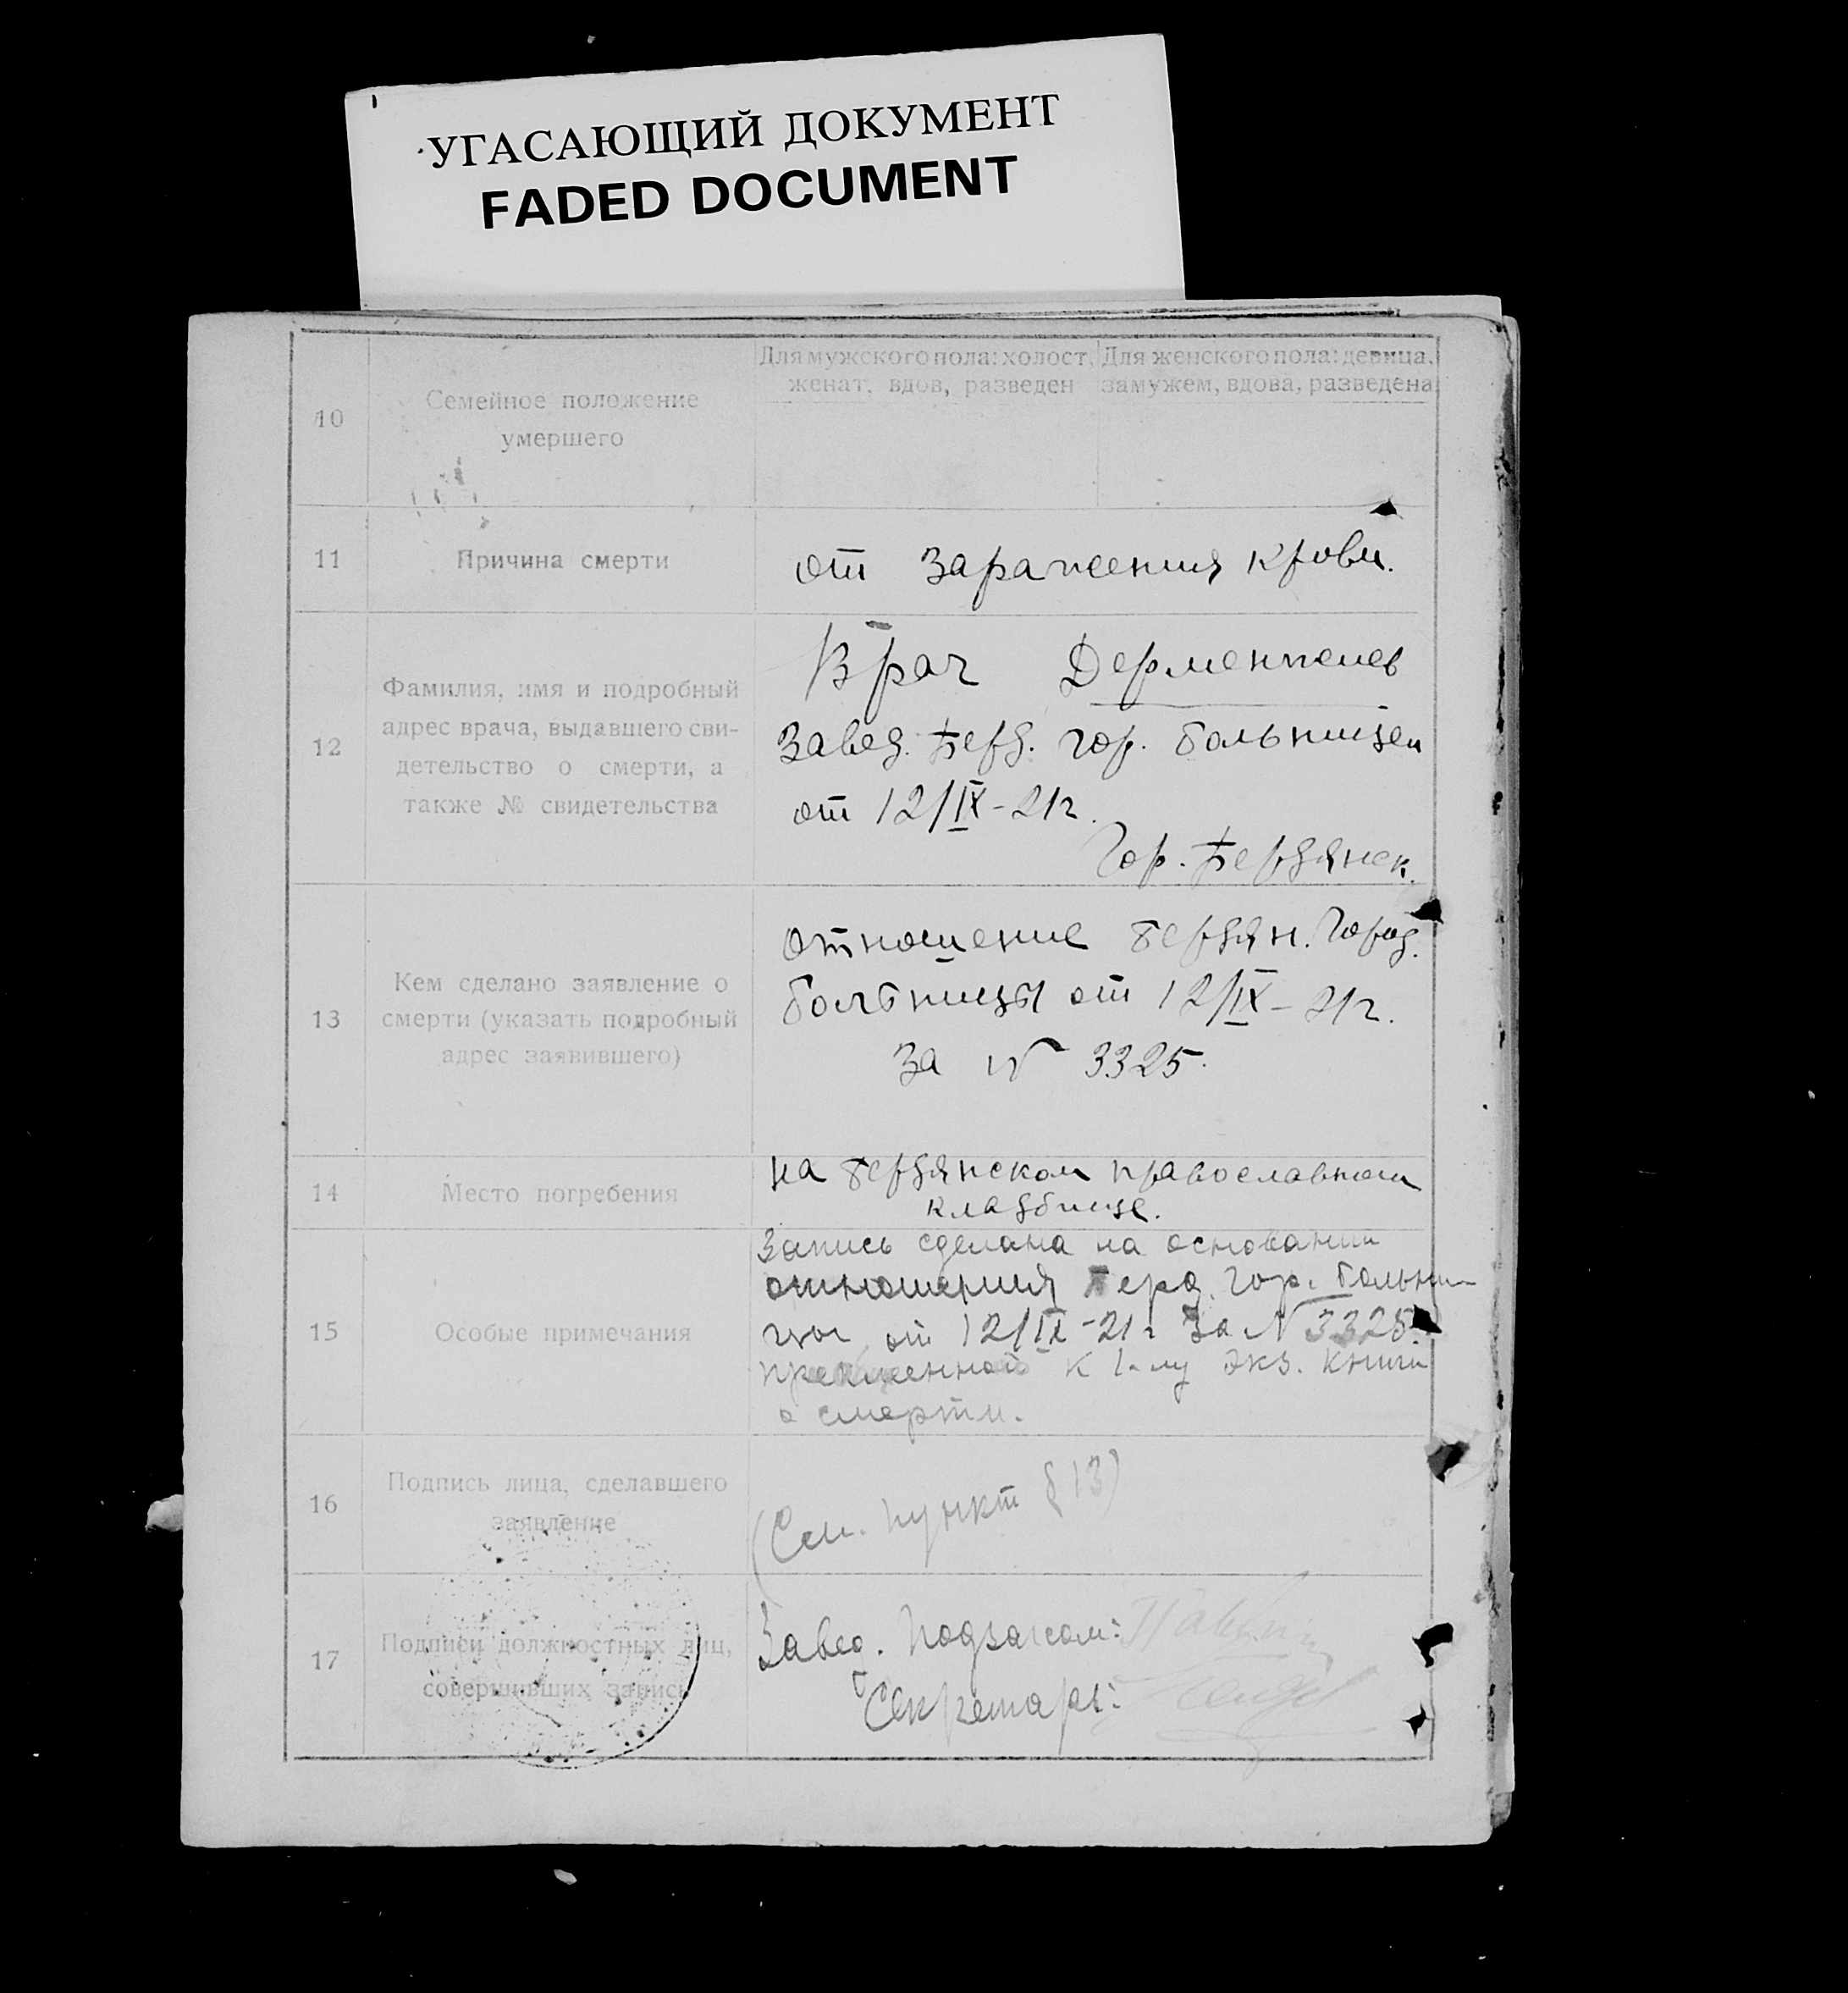 УГАСАЮЩИЙ ДОКУМЕНТ
FADED DOCUMENT
10
Семейное положение
умершего
Для мужского пола: холост,
женат, вдов, разведен
Для женского пола: девица,
замужем, вдова, разведена
11
Причина смерти
от заражения крови.
12
Фамилия, имя и подробный
адрес врача, выдавшего сви-
детельство о смерти, а
также № свидетельства
Врач
Завед. Берд. гор. больницей
от 12/IX-21г.
Гор. Бердянск.
13
Кем сделано заявление о
смерти (указать подробный
адрес заявившего)
отношение Бердян. Город.
больницы от 12/IX-21г.
за № 3325.
14
Место погребения
на Бердянском православном
кладбище.
15
Особые примечания
Запись сделана на основании
отношения Берд. гор. больни-
цы от 12/IX-21г за № 3325.
к 1-му экз. книги
о смерти.
16
Подпись лица, сделавшего
заявление
(См. пункт § 13)
17
Подписи должностных лиц,
совершивших запись
Завед. Подзагсом:
Секретарь: